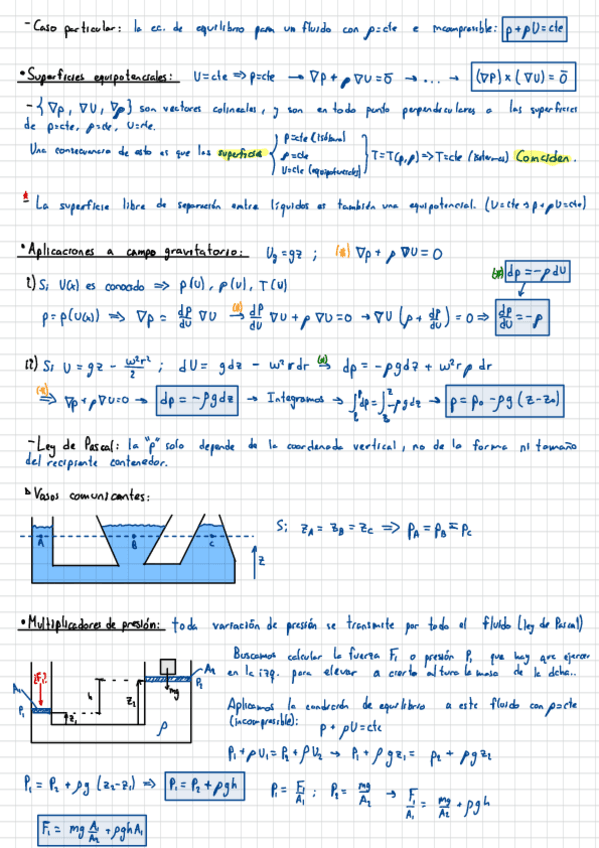 - Caso particular: la ec. de equilibrio para un fluido con ρ=cte e incompresible: p+ρU=cte
• Superficies equipotenciales: U=cte ⇒ p=cte → ∇p + ρ∇U = 0̄ → ... → (∇P) x (∇U) = 0̄
- {∇p, ∇U, ∇ρ} son vectores colineales, y son en todo punto perpendiculares a las superficies
de p=cte, ρ=cte, U=cte.
Una consecuencia de esto es que las superficies { p=cte (isóbaras) ρ=cte U=cte (equipotenciales) } T=T(p,ρ) => T=cte (isotermas) Coinciden.
* La superficie libre de separación entre líquidos es también una equipotencial. (U=cte → p+ρU=cte)
• Aplicaciones a campo gravitatorio: Ug = gz ; (*) ∇p + ρ∇U = 0
i) Si U(x) es conocido => p(U), ρ(U), T(U) (*) dp = -ρdU
p = p(U(x)) => ∇p = dp/dU ∇U (*)→ dp/dU ∇U + ρ∇U = 0 → ∇U (ρ + dp/dU) = 0 => dp/dU = -ρ
ii) Si U = gz - ω²r²/2 ; dU = gdz - ω²rdr (*)=> dp = -ρgdz + ω²rρ dr
(*)=> ∇p + ρ∇U = 0 → dp = -ρgdz → Integramos → ∫dp = ∫-ρgdz → p = p₀ - ρg (z-z₀)
- Ley de Pascal: la "p" solo depende de la coordenada vertical, no de la forma ni tamaño
del recipiente contenedor.
Vasos comunicantes:
A B C z
Si z_A = z_B = z_C => p_A = p_B = p_C
• Multiplicadores de presión: toda variación de presión se transmite por todo el fluido (ley de Pascal)
¿F₁? A₁ P₁ h z₁ z₂ mg A₂ P₂ ρ
Buscamos calcular la fuerza F₁ o presión P₁ que hay que ejercer
en la izq. para elevar a cierta altura la masa de la dcha..
Aplicamos la condición de equilibrio a este fluido con ρ=cte
(incompresible): p + ρU = cte
P₁ + ρU₁ = P₂ + ρU₂ → P₁ + ρgz₁ = P₂ + ρgz₂
P₁ = P₂ + ρg (z₂-z₁) => P₁ = P₂ + ρgh P₁ = F₁/A₁ ; P₂ = mg/A₂ → F₁/A₁ = mg/A₂ + ρgh
F₁ = mg A₁/A₂ + ρghA₁